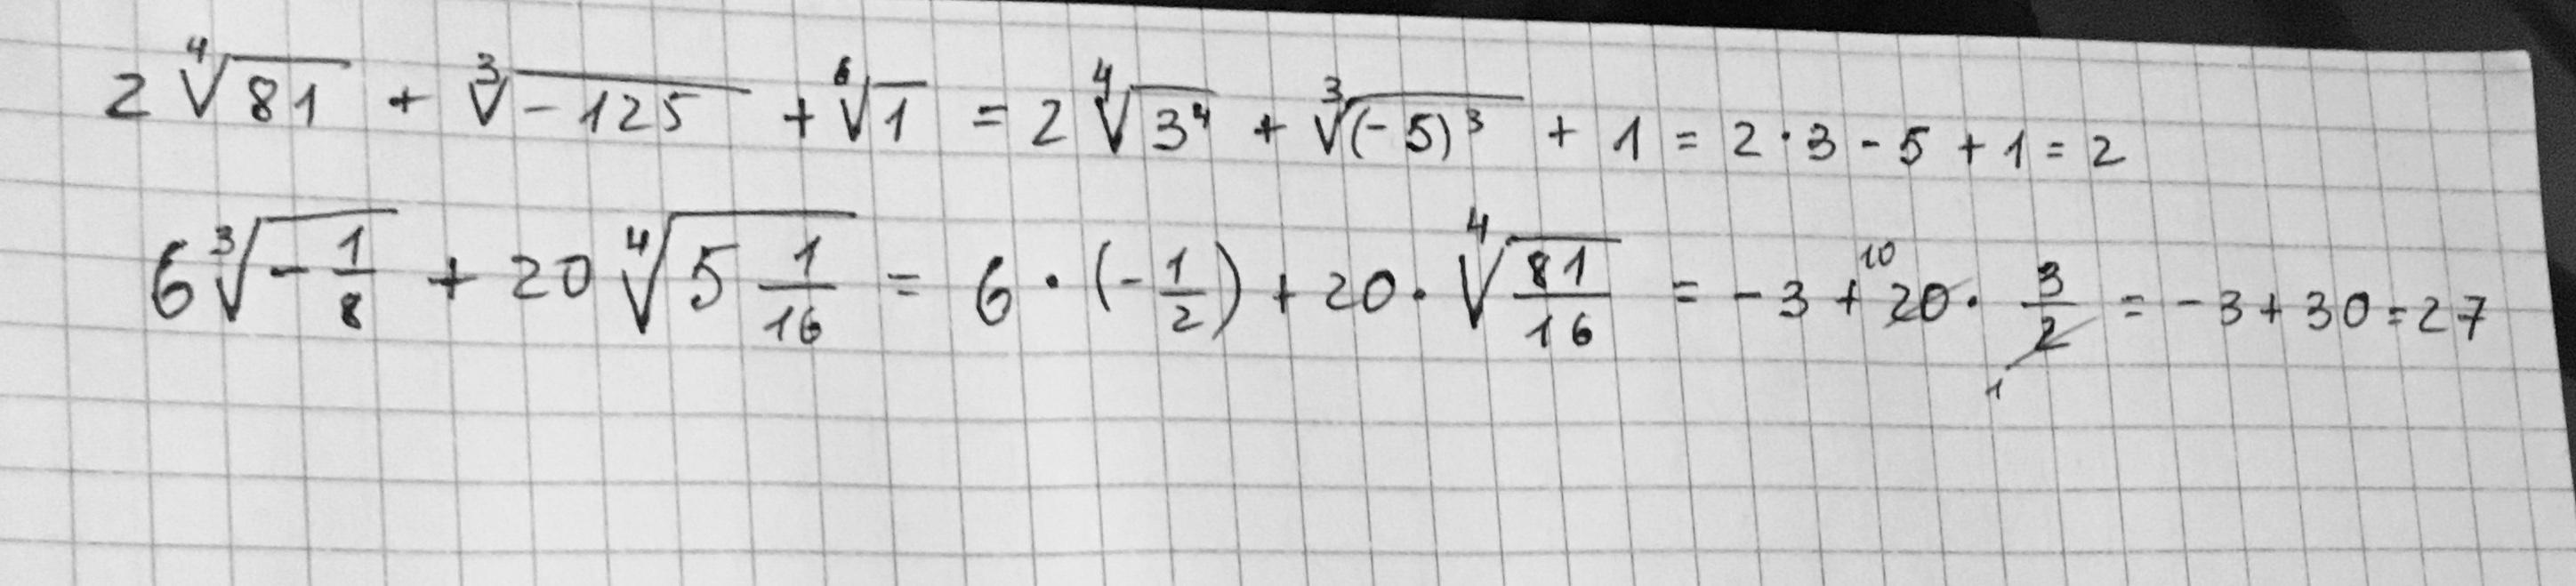 2 ⁴√81 + ³√-125 + ⁶√1 = 2 ⁴√3⁴ + ³√(-5)³ + 1 = 2·3 - 5 + 1 = 2
6 ³√-1/8 + 20 ⁴√5 1/16 = 6·(-1/2) + 20·⁴√81/16 = -3 + 20 10 · 3/2 1 = -3 + 30 = 27